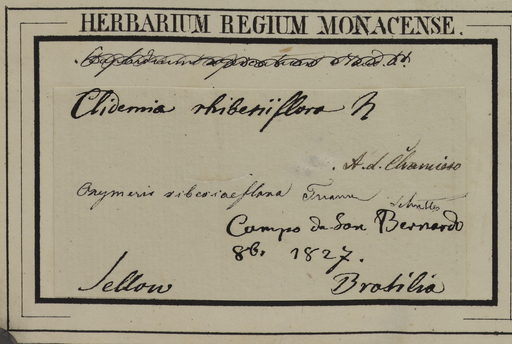 HERBARIUM REGIUM MONACENSE.
Clidemia rhibesiiflora
A. d. Chamisso
Oxymeris ribesiaeflora Triana
Campo da San Bernardo
8br 1827.
Sellow Brasilia